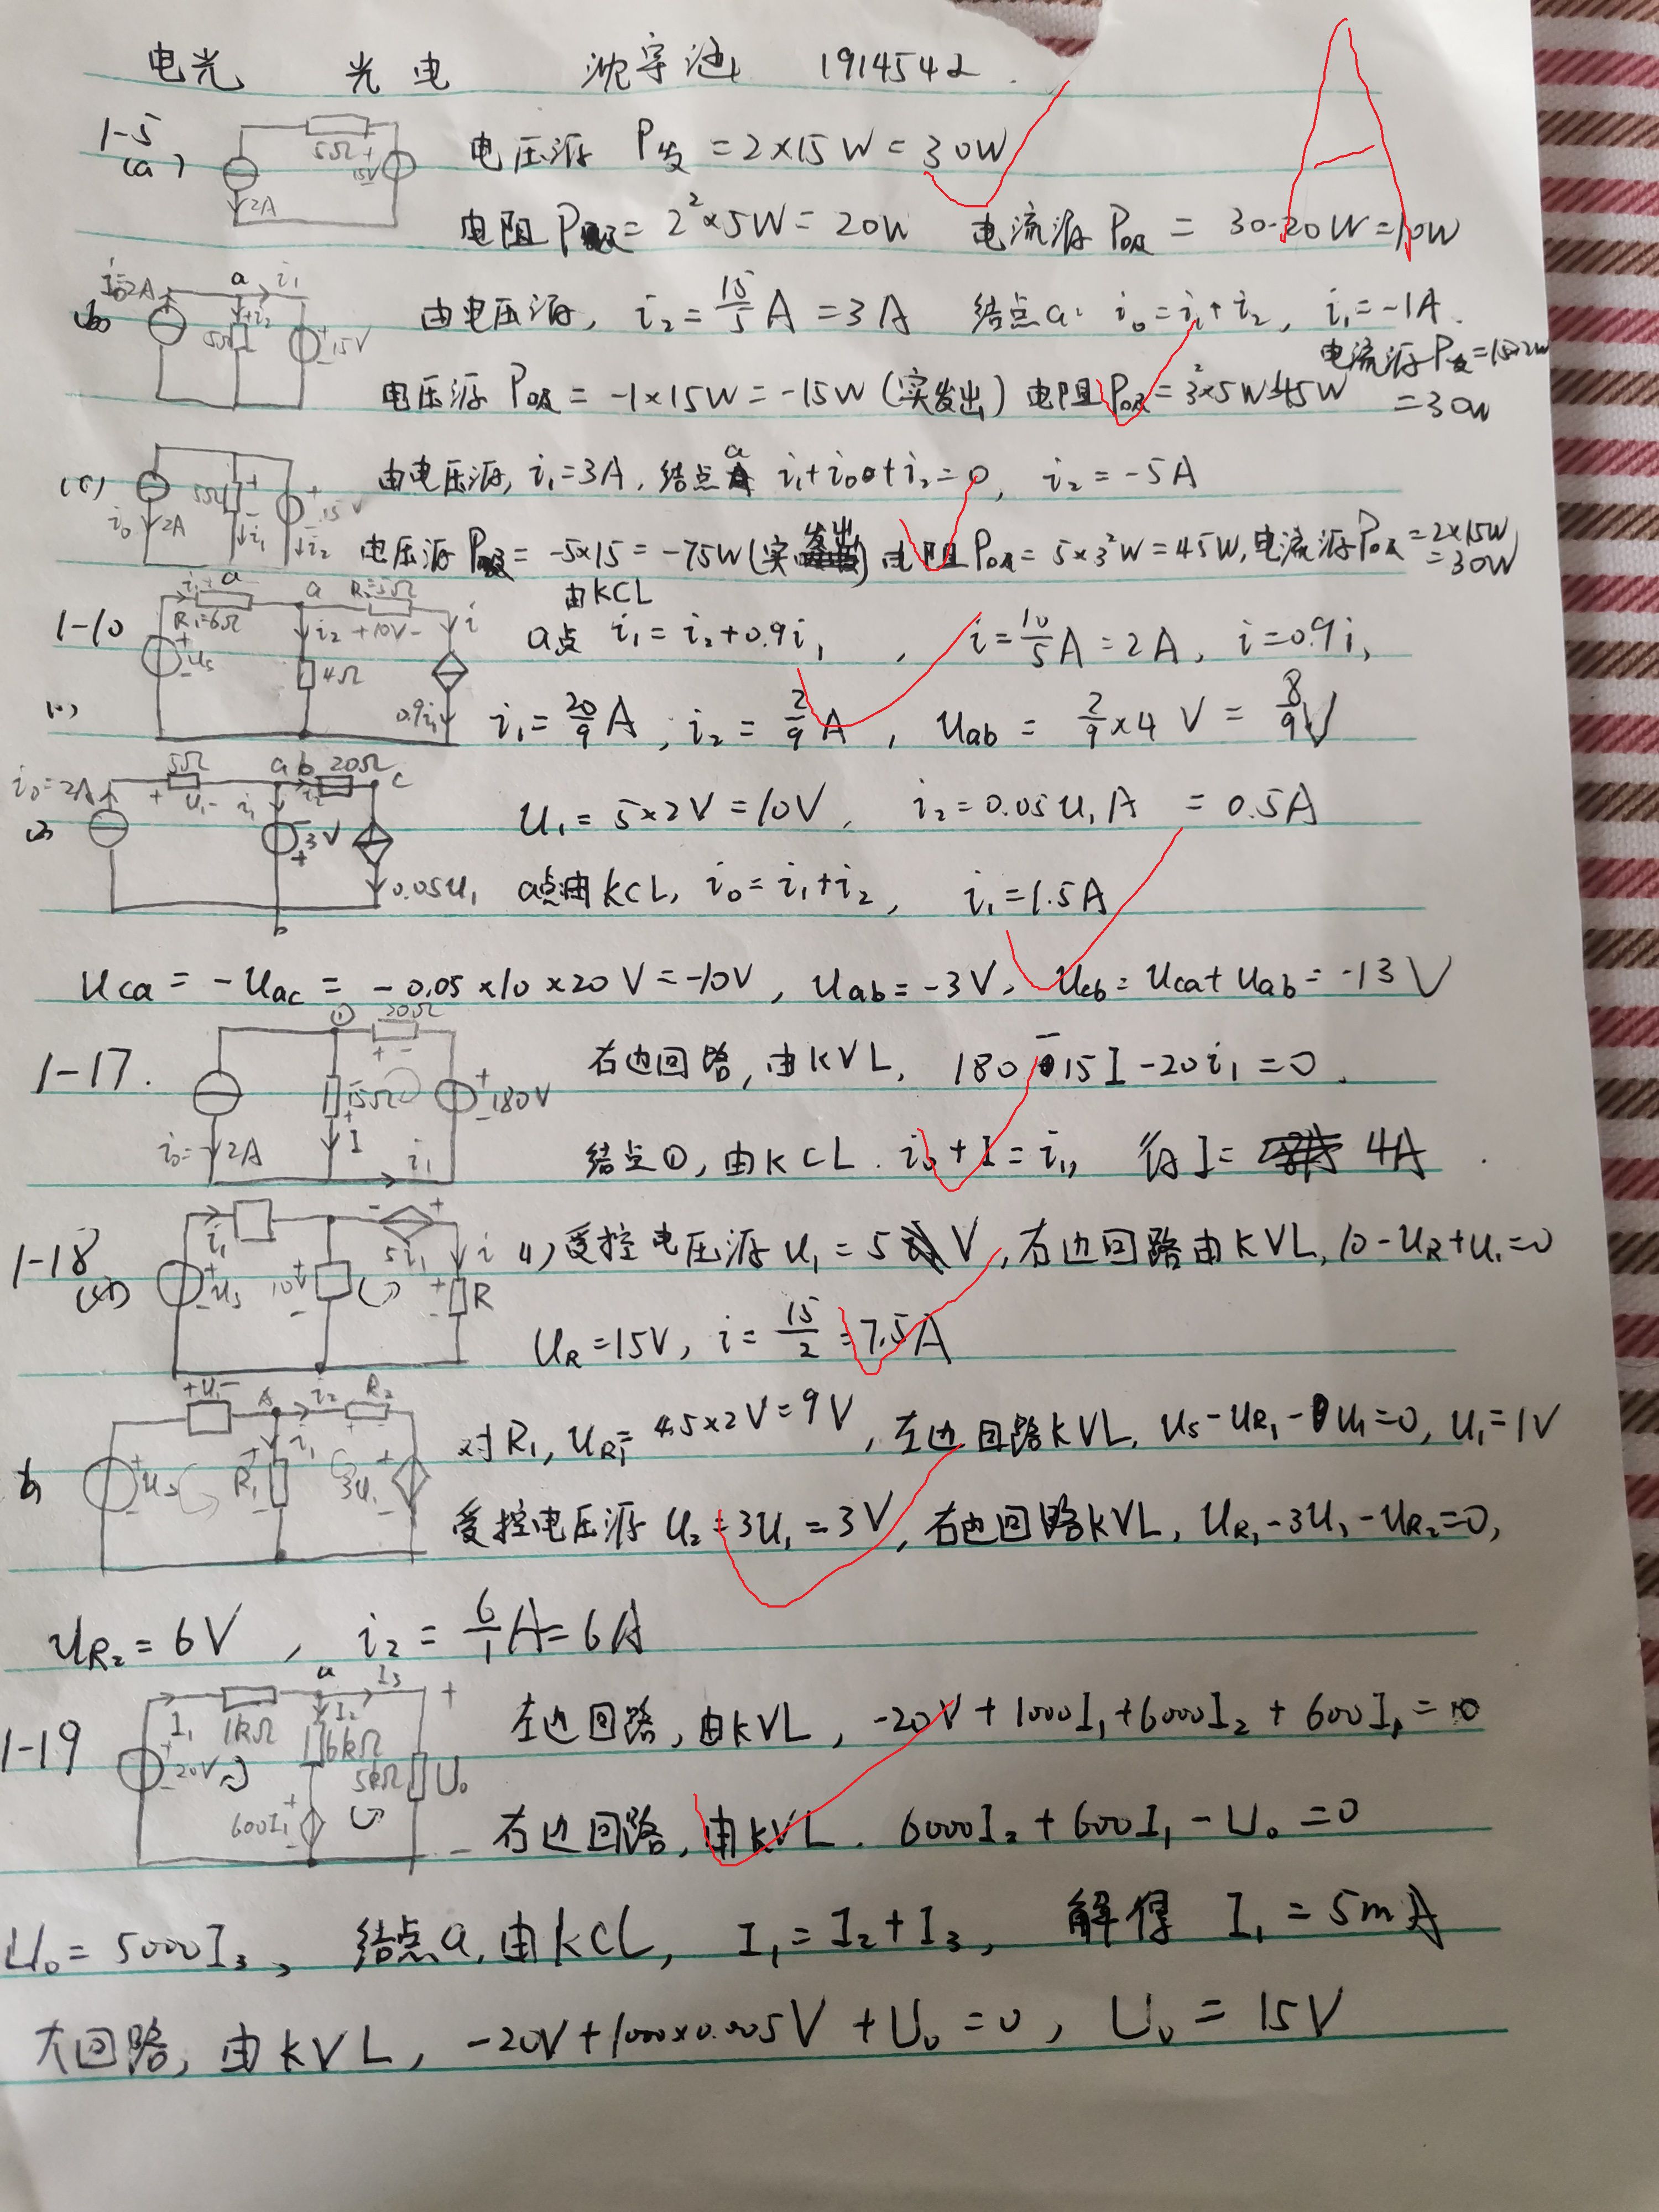 电光 光电 沈宇池 1914542
1-5
(a) 5Ω + 15V - 2A
电压源 P发 = 2×15W = 30W
电阻 P吸 = 2²×5W = 20W 电流源 P吸 = 30-20W = 10W
(b) i₀=2A a i₁ +i₂ 5Ω + 15V -
由电压源, i₂ = 15/5 A = 3A 结点a: i₀ = i₁ + i₂, i₁ = -1A.
电压源 P吸 = -1×15W = -15W (实发出) 电阻 P吸 = 3²×5W=45W 电流源 P发 = 15×2W = 30W
(c) i₀ 2A 5Ω + - i₁ + 15V - i₂
由电压源, i₁=3A, 结点a i₁+i₀+i₂=0, i₂ = -5A
电压源 P吸 = -5×15 = -75W (实发出) 电阻 P吸 = 5×3²W = 45W, 电流源 P吸 = 2×15W = 30W
1-10
(1) i₁ a R₁=6Ω + us - a R₂=5Ω i₂ +10V- i 4Ω 0.9i₁
由KCL
a点 i₁ = i₂+0.9i₁, i = 10/5 A = 2A, i=0.9i₁
i₁ = 20/9 A, i₂ = 2/9 A, uab = 2/9 ×4 V = 8/9 V
(2) i₀=2A 5Ω + u₁ - i₁ a b i₂ 20Ω c - 3V + 0.05u₁ b
U₁ = 5×2V = 10V, i₂ = 0.05u₁A = 0.5A
a点由KCL, i₀ = i₁+i₂, i₁ = 1.5A
uca = -uac = -0.05×10×20V = -10V, uab = -3V, ucb = uca + uab = -13V
1-17. ① 20Ω + - 15Ω + I + 180V - i₀=2A i₁
右边回路, 由KVL, 180-15I-20i₁=0.
结点①, 由KCL. i₀+I=i₁, 得I= 4A
1-18
(a) i₁ + us - + 10V - - 5i₁ + i + R -
(1) 受控电压源 u₁ = 5V, 右边回路由KVL, 10-uR+u₁=0
UR=15V, i = 15/2 = 7.5A
b) +u₁- A i₂ R₂ + us - R₁ i₁ 3u₁ +
对R₁, uR₁= 4.5×2V=9V, 左边回路KVL, us-uR₁-u₁=0, u₁=1V
受控电压源 u₂=3u₁=3V, 右边回路KVL, uR₁-3u₁-uR₂=0,
uR₂ = 6V, i₂ = 6/1 A = 6A
1-19 I₁ 1kΩ a I₂ I₃ + 20V - 6kΩ 600I₁ + - 5kΩ + U₀ -
左边回路, 由KVL, -20V+1000I₁+6000I₂+600I₁=0
右边回路, 由KVL. 6000I₂+600I₁-U₀=0
U₀=5000I₃, 结点a, 由KCL, I₁=I₂+I₃, 解得 I₁=5mA
大回路, 由KVL, -20V+1000×0.005V+U₀=0, U₀=15V
A